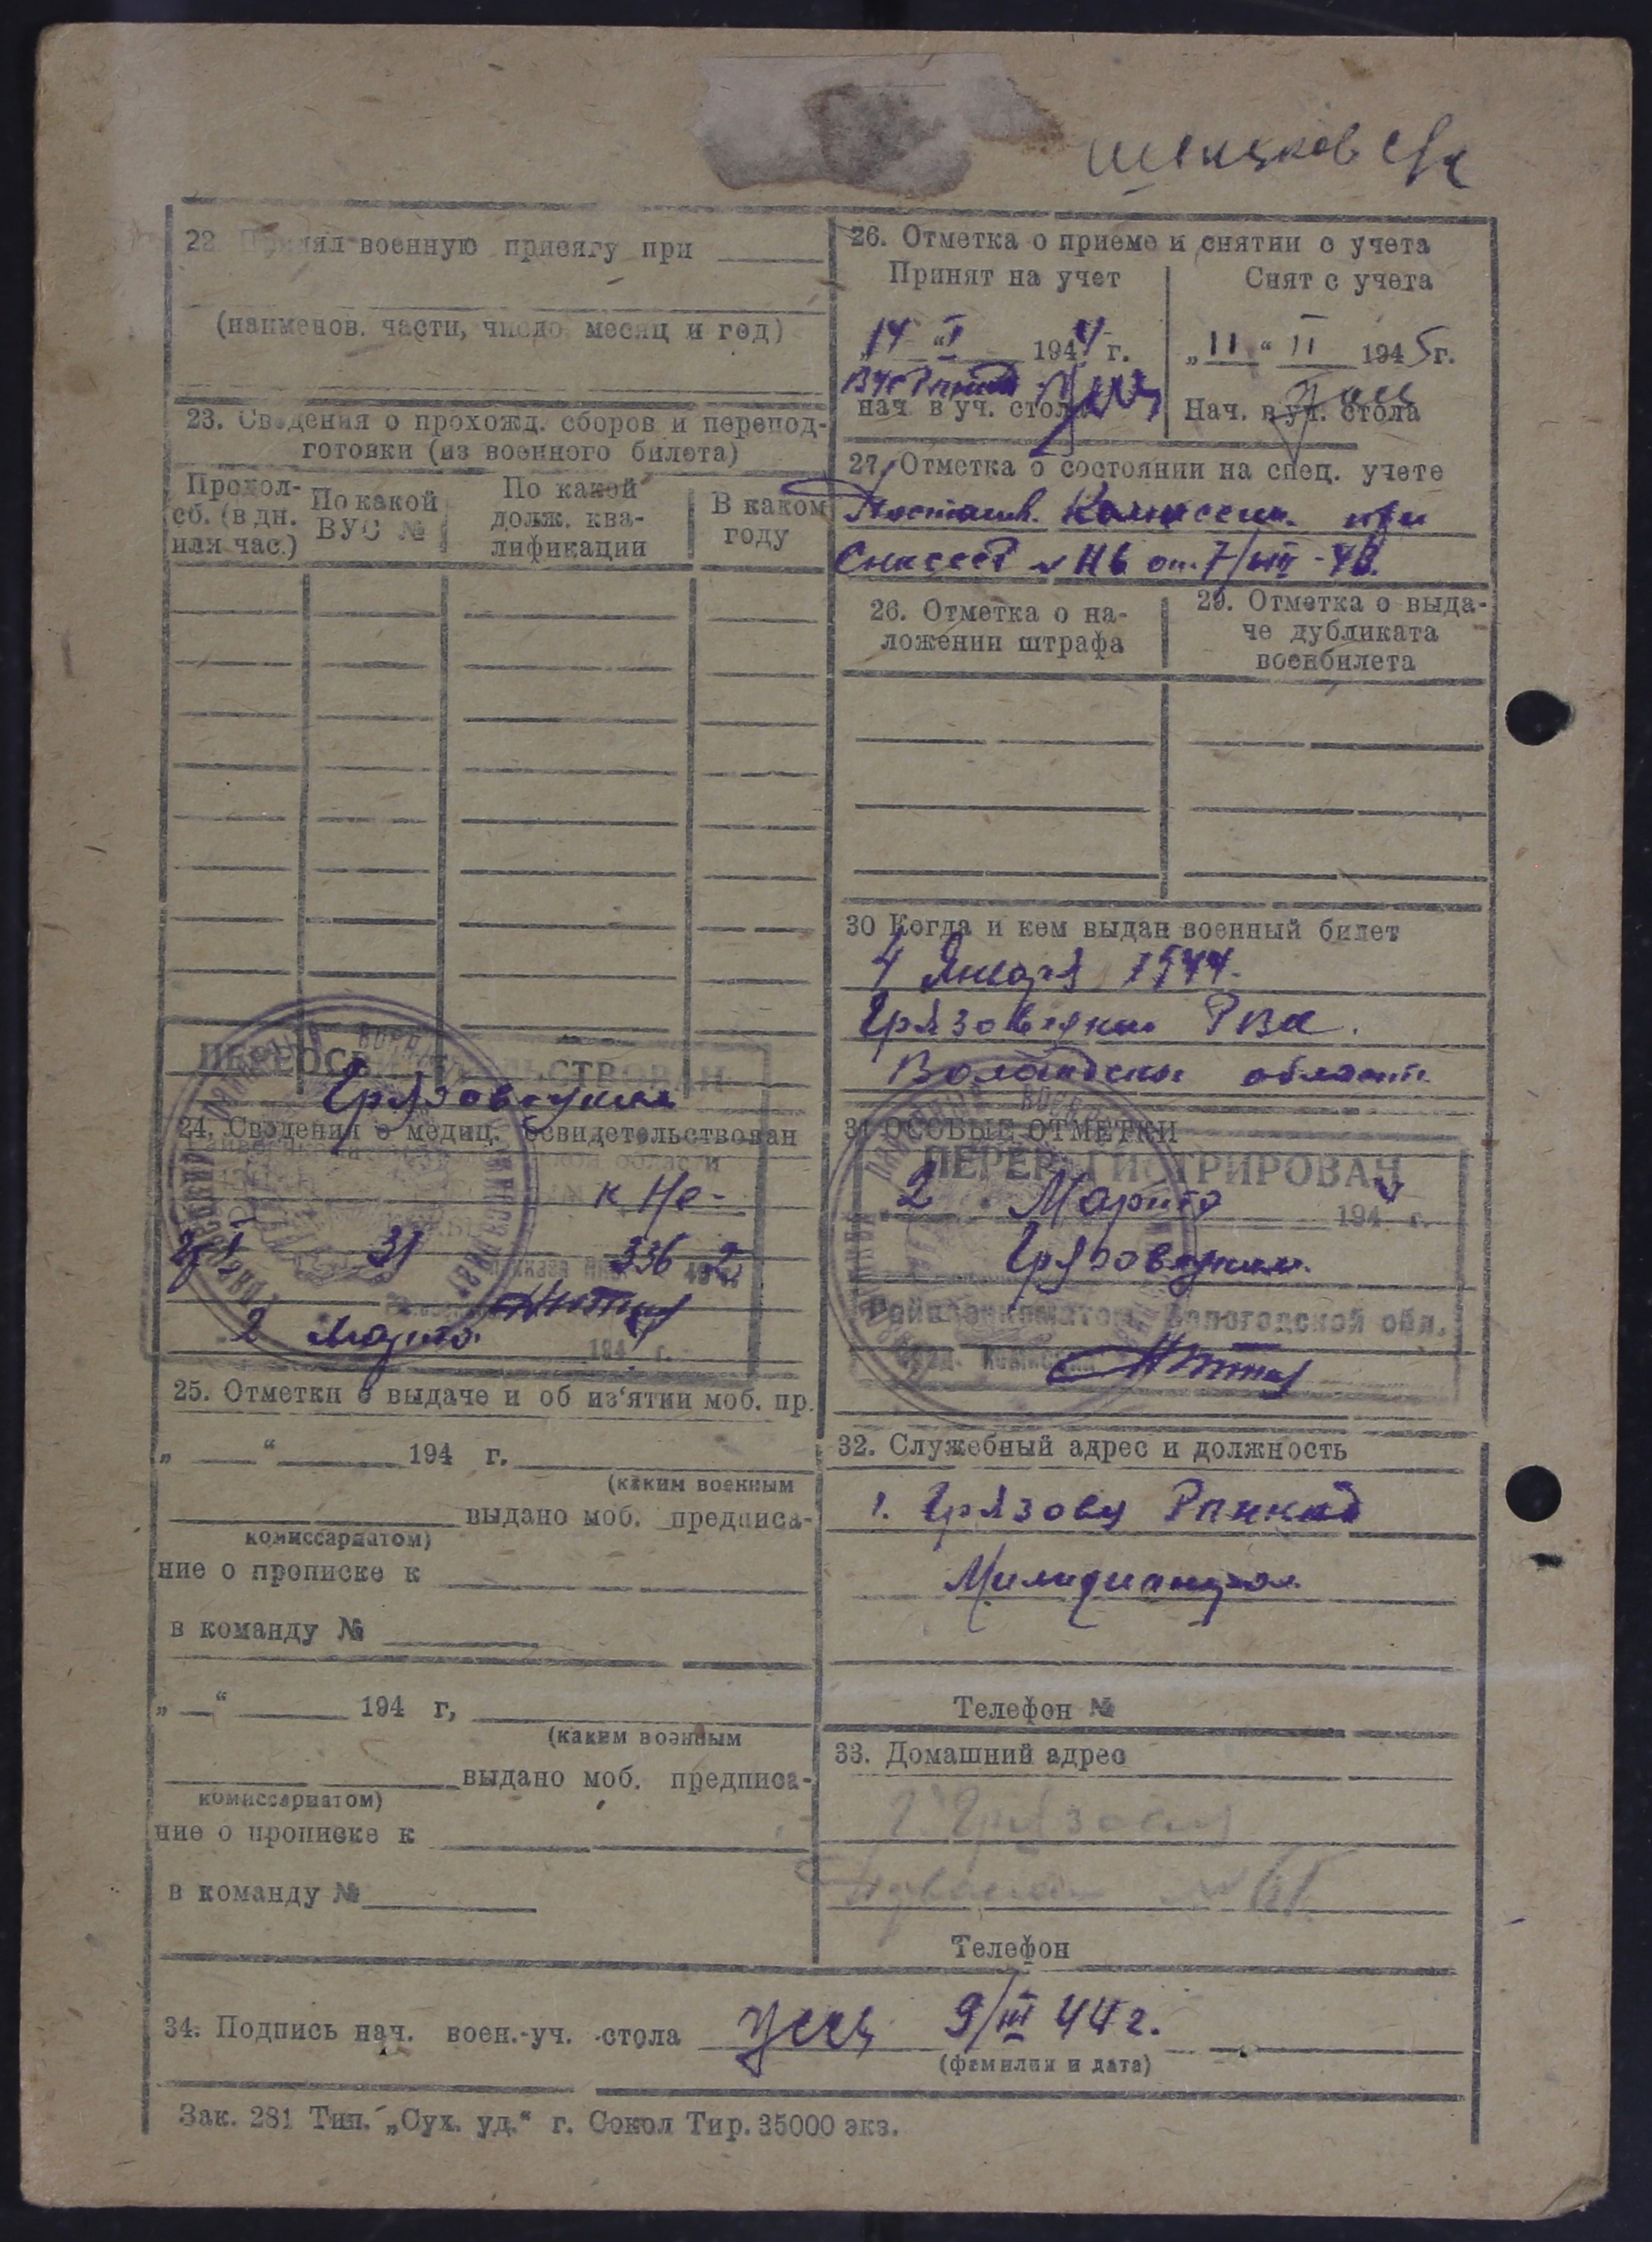 22. Принял военную присягу при
(наименов. части, число месяц и год)
23. Сведения о прохожд. сборов и перепод-
готовки (из военного билета)
Продол-
сб. (в дн.
или час.)
По какой
ВУС №
По какой
долж. ква-
лификации
В каком
году
ПЕРЕОСВИДЕТЕЛЬСТВОВАН
Грязовецким
24. Сведения о медиц. освидетельствован
к Не-
31 336
2 Марта 194 г.
25. Отметки о выдаче и об из‘ятии моб. пр.
„ “ 194 г.
(каким военным
выдано моб. предписа-
комиссариатом)
ние о прописке к
в команду №
„ “ 194 г,
(каким военным
выдано моб. предписа-
комиссариатом)
ние о прописке к
в команду №
26. Отметка о приеме и снятии с учета
Принят на учет
14 “ I 1944 г.
нач. в уч. стола
Снят с учета
„ 11 “ II 1945 г.
Нач. в уч. стола
27. Отметка о состоянии на спец. учете
при
от 7/VIII-
26. Отметка о на-
ложении штрафа
29. Отметка о выда-
че дубликата
военбилета
30 Когда и кем выдан военный билет
4 Января 1944.
Грязовецким РВК.
Вологодской области
31 ОСОБЫЕ ОТМЕТКИ
ПЕРЕРЕГИСТРИРОВАН
2 Марта 194 г.
Грязовецким
Райвоенкоматом, Вологодской обл.
32. Служебный адрес и должность
г. Грязовец
Телефон №
33. Домашний адрес
г. Грязовец
Телефон
34. Подпись нач. воен.-уч. стола 9/III 44 г.
(фамилия и дата)
Зак. 281 Тип. „Сух. уд.“ г. Сокол Тир. 35000 экз.